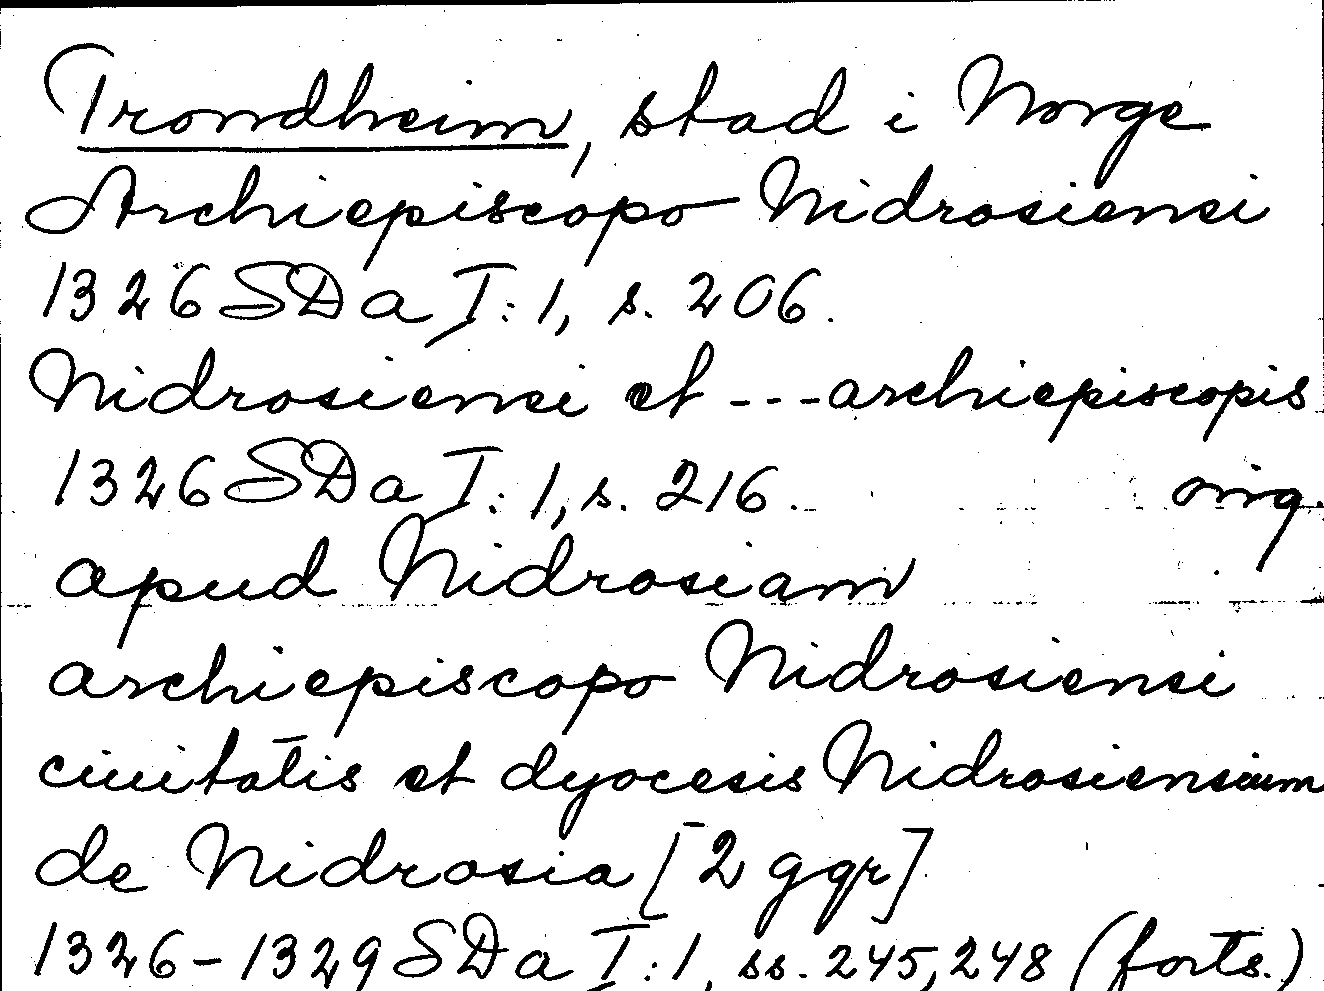 Trondheim, stad i Norge
Archiepiscopo Nidrosiensi
1326 SDa I:1, s. 206.
Nidrosiensi et --- archiepiscopis
1326 SDa I:1, s. 216. orig.
apud Nidrosiam
archiepiscopo Nidrosiensi
ciuitatis et dyocesis Nidrosiensium
de Nidrosia [2 ggr]
1326-1329 SDa I:1, ss. 245, 248 (forts.)